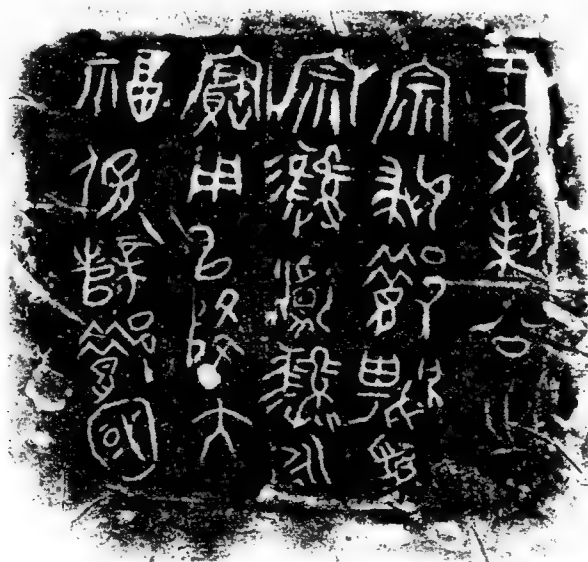 王子剌公之
宗婦嫛為
宗彝彝永
寶用以降大
福保辥國